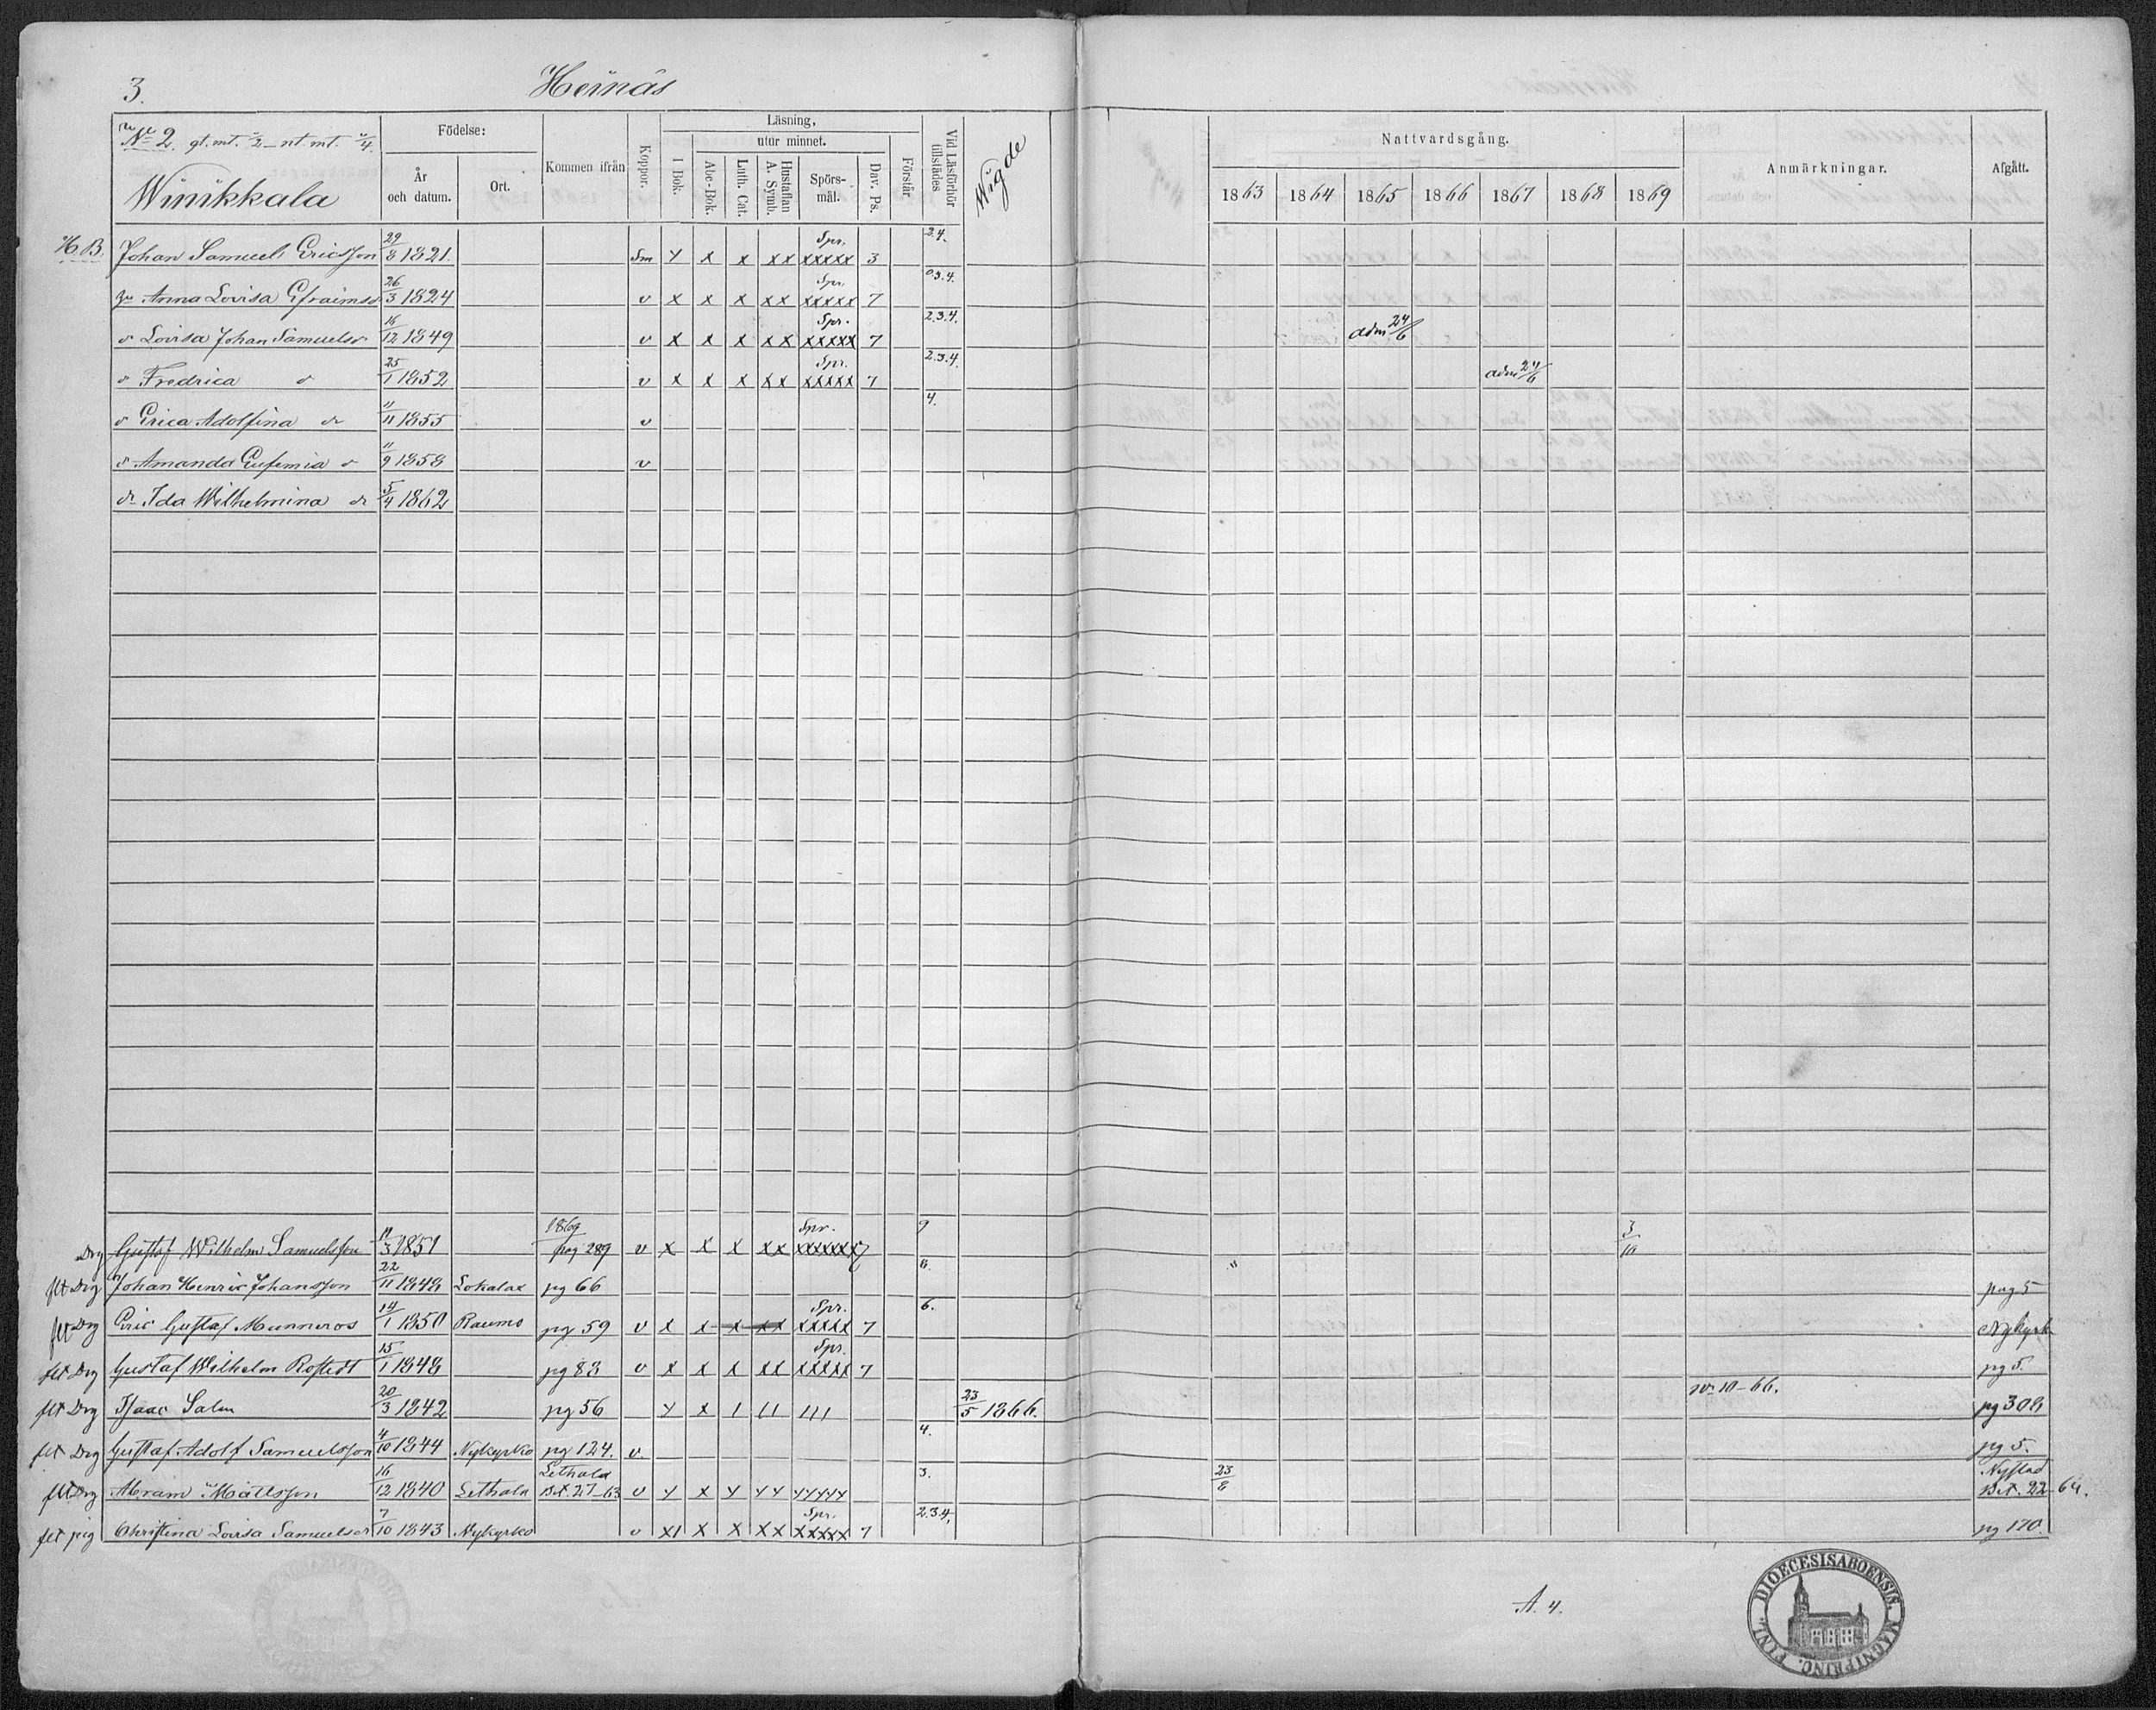 3. Heinäs
No 2. gt. mt. 1/2 – nt. mt. 1/4.
Winikkala
Födelse: År och datum. Ort. Kommen ifrån Koppor. Läsning, I Bok. utur minnet. Abc-Bok. Luth. Cat. Hustaflan A. Symb. Spörs-mål. Dav. Ps. Förstår Vid Läsförhör tillstädes Wigde
Nattvardsgång. 1863 1864 1865 1866 1867 1868 1869 Anmärkningar. Afgått.
H. B. Johan Samuel Ericsson 29/8 1821. Sm y x x xx Spr. xxxxx 3 3.4.
hu Anna Lovisa Efraimsdr 26/3 1824 v x x x xx Spr. xxxxx 7 3.4.
dr Lovisa Johan Samuelsdr 16/12 1849 v x x x xx Spr. xxxxx 7 2.3.4. adm 24/6
dr Fredrica dr 25/1 1852 v x x x xx Spr. xxxxx 7 2.3.4. adm 24/6
dr Erica Adolfina dr 11/11 1855 v 4.
dr Amanda Eufemia dr 11/9 1858 v
dr Ida Wilhelmina dr 5/4 1862
Drg Gustaf Wilhelm Samuelsson 11/3 1851 1869 pag 289 v x x x xx Spr. xxxxxx 7 9 3/10
flt Drg Johan Henric Johansson 22/11 1848 Lokalax pg 66 8. " pag 5
flt Drg Eric Gustaf Munneros 14/1 1850 Raumo pg 59 v x x x xx Spr. xxxxx 7 6. Nykyrk
flt Drg Gustaf Wilhelm Rostedt 15/1 1848 pg 83 v x x x xx Spr. xxxxx 7 pg 5.
flt Drg Isaac Salen 20/3 1842 pg 56 y x 1 11 111 23/5 1866. 10–66. pg 308
flt Drg Gustaf Adolf Samuelsson 4/10 1844 Nykyrko pg 124. v. 4. pg 5.
flt Drg Abram Mattsson 16/12 1840 Lethala Lethala Bet. 27–63 v y x y yy yyyyy 3. 23/8 Nystad Bet. 22–64.
flt pig Christina Lovisa Samuelsdr 7/10 1843 Nykyrko v x1 x x xx Spr. xxxxx 7 2.3.4. pg 170.
A. 4.
DIOECESIS ABOENSIS. MAGNI PRINC. FINL.